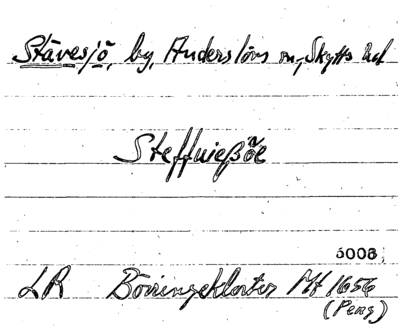 Stävesjö, by, Anderslövs sn, Skytts hd
Steffnießöe
5008,
LR Börringekloster Mf 1656
(Peng)